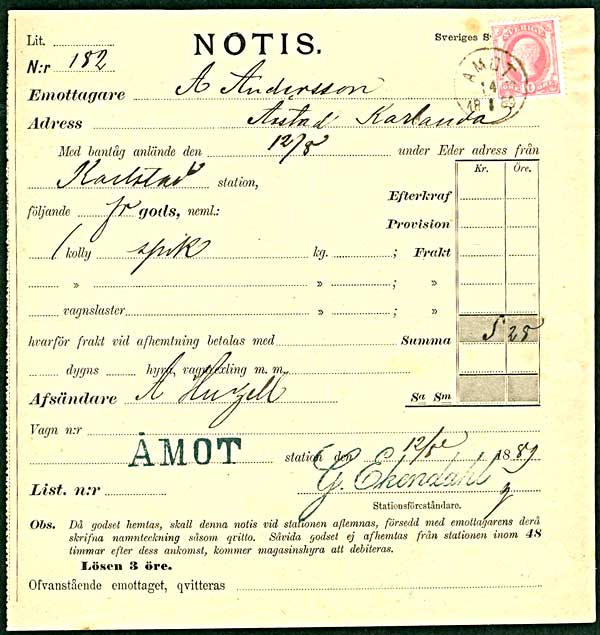 Lit.
NOTIS.
Sveriges S
N:r 182
SVERIGE
10
ÅMOT
14
18 89
Emottagare A Andersson
Adress Karlanda
Med bantåg anlände den 12/8 under Eder adress från
Karlstad station,
Kr. Öre.
Efterkraf
följande fr gods, neml.:
Provision
1 kolly spik kg. ; Frakt
" " ; "
vagnslaster " ; "
hvarför frakt vid afhemtning betalas med Summa 5 28
dygns hyra, vagnvexling m. m.
Afsändare A
Sa Sm
Vagn n:r
ÅMOT station den 12/8 1889
List. n:r G. Ekendahl
Stationsföreståndare.
Obs. Då godset hemtas, skall denna notis vid stationen aflemnas, försedd med emottagarens derå
skrifna namnteckning såsom qvitto. Såvida godset ej afhemtas från stationen inom 48
timmar efter dess ankomst, kommer magasinshyra att debiteras.
Lösen 3 öre.
Ofvanstående emottaget, qvitteras